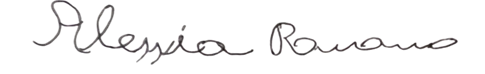 Alessia Romano